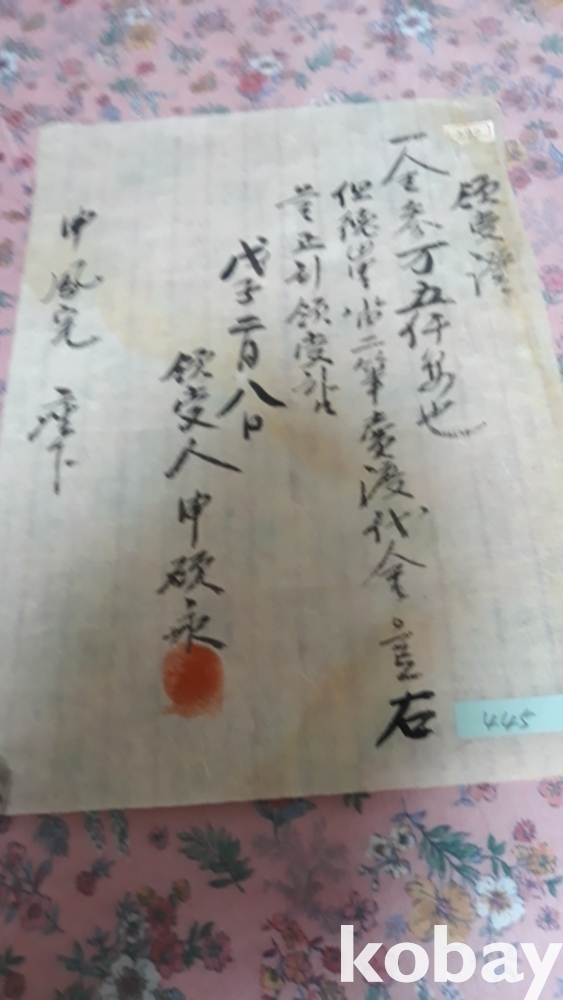 領受證
一金參万五仟원也
但 二筆賣渡代金 右
正히領受함
戊子二月八日
領受人 申硯永
申鳳完 座下
445
kobay